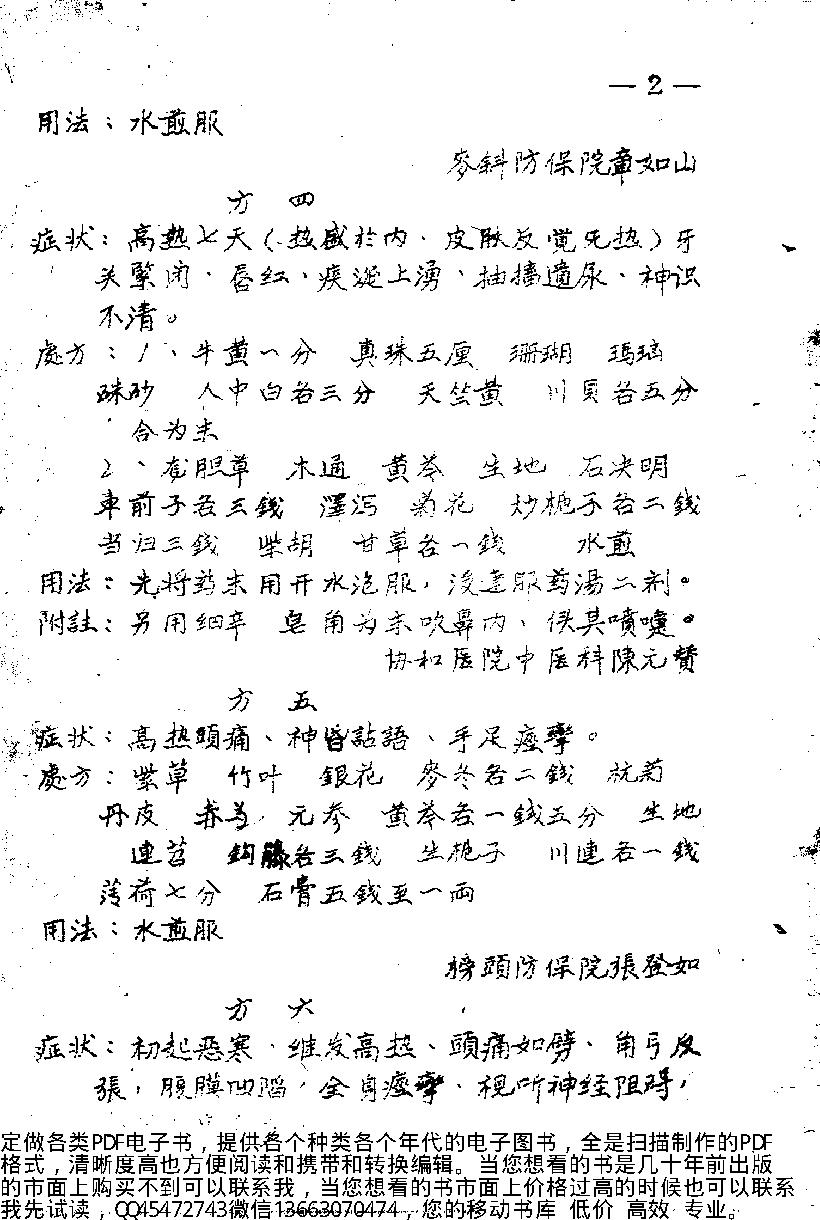 — 2 —
用法：水煎服
麥斜防保院章如山
方 四
症状：高热七天（热盛於内、皮肤反觉无热）牙
关緊闭、唇红、痰涎上湧、抽搐遗尿、神识
不清。
處方：1、牛黄一分 真珠五厘 珊瑚 瑪瑙
硃砂 人中白各三分 天竺黄 川贝各五分
合为末
2、龙胆草 木通 黄芩 生地 石决明
車前子各三錢 澤泻 菊花 炒栀子各二錢
当归三錢 柴胡 甘草各一錢 水煎
用法：先将药末用开水泡服，後連服药湯二剂。
附註：另用细辛 皂角为末吹鼻内、候其噴嚏。
协和医院中医科陳元贊
方 五
症状：高热頭痛、神昏詀語、手足痙攣。
處方：紫草 竹叶 銀花 麥冬各二錢 杭菊
丹皮 赤芍 元参 黄芩各一錢五分 生地
連苕 鈎藤各三錢 生栀子 川連各一錢
薄荷七分 石膏五錢至一両
用法：水煎服
榜頭防保院張登如
方 六
症状：初起惡寒、维发高热、頭痛如劈、角弓反
張，腹膜凹陷，全身痙攣、視听神经阻碍，
定做各类PDF电子书，提供各个种类各个年代的电子图书，全是扫描制作的PDF
格式，清晰度高也方便阅读和携带和转换编辑。当您想看的书是几十年前出版
的市面上购买不到可以联系我，当您想看的书市面上价格过高的时候也可以联系
我先试读，QQ45472743微信13663070474，您的移动书库 低价 高效 专业。